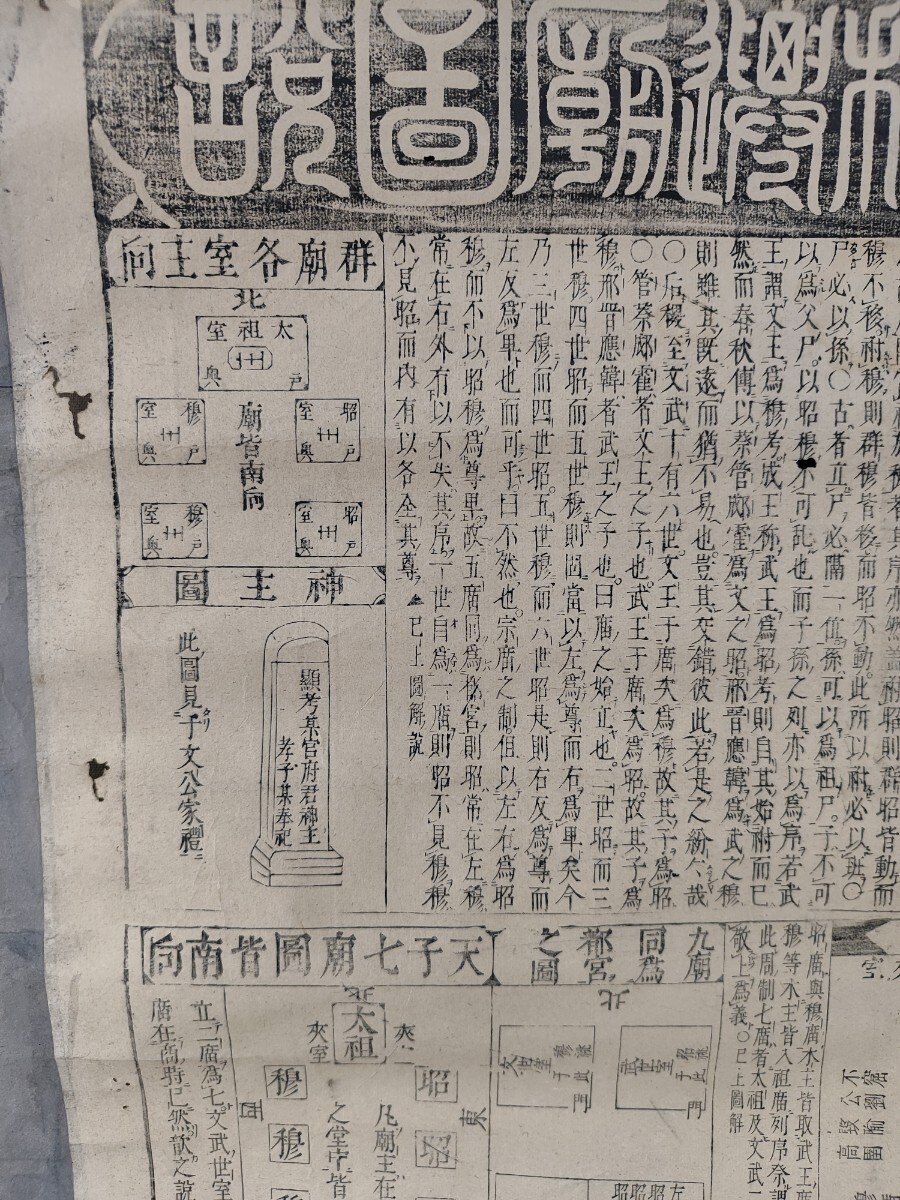 遷廟圖說
穆不移祔穆則群穆皆移而昭不動此所以祔必以班〇
尸必以孫〇古者立尸必隔一位孫可以爲祖尸子不可
以爲父尸以昭穆不可乱也而子孫之列亦以爲序若武
王謂文王爲穆考成王称武王爲昭考則自其始祔而已
然而春秋傳以蔡管郕霍爲文之昭邘晋應韓爲武之穆
則雖其既遠而猶不易也豈其交錯彼此若是之紛々哉
〇后稷至文武十有六世文王于廟次爲穆故其子爲昭
〇管蔡郕霍者文王之子也武王于廟次爲昭故其子爲
穆邘晋應韓者武王之子也曰廟之始立也二世昭而三
世穆四世昭而五世穆則固當以左爲尊而右爲卑矣今
乃三世穆而四世昭五世穆而六世昭是則右反爲尊而
左反爲卑也而可乎曰不然也宗廟之制但以左右爲昭
穆而不以昭穆爲尊卑故五廟同爲都宮則昭常在左穆
常在右外有以不失其序一世自爲一廟則昭不見穆穆
不見昭而内有以各全其尊▲已上圖解説
群廟各室主向
北
太祖室
主
戶
奧
昭室
主
戶
奧
穆室
主
戶
奧
廟皆南向
昭室
主
戶
奧
穆室
主
戶
奧
神主圖
顯考某官府君神主
孝子某奉祀
此圖見于文公家禮
昭廟與穆廟木主皆取武王廟
穆等木主皆入祖廟列序祭
此周制七廟者太祖及文武二
敬上爲義〇已上圖解
九廟同爲都宮之圖
北
武世室
文世室
門
門
天子七廟圖皆南向
北
太祖
夾
夾室
昭
昭
穆
穆
東
西
凡廟主在
之堂序皆
立二廟爲七文武世室
廟在商時已然歆之說